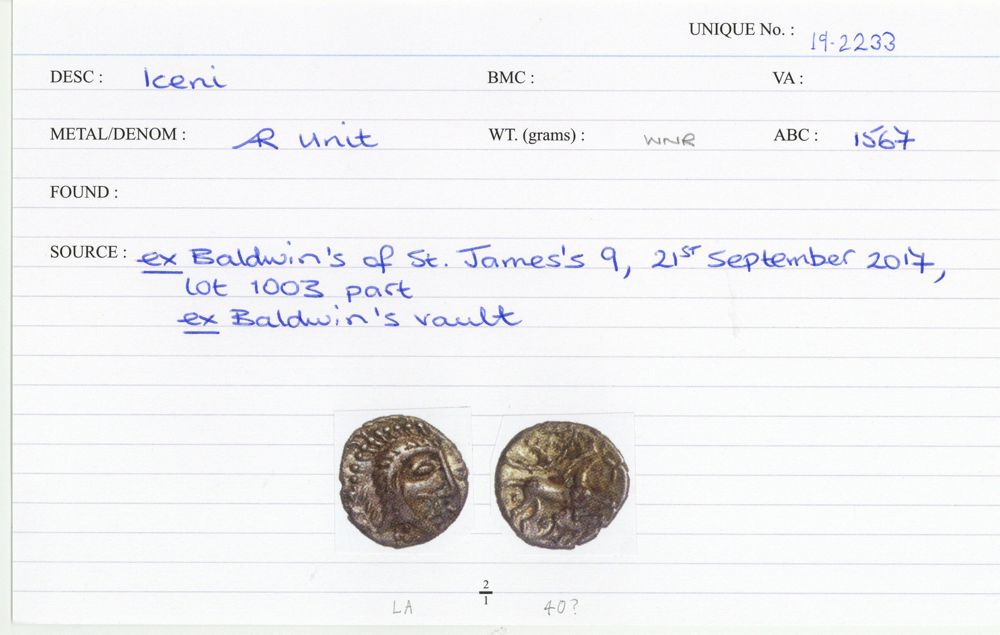 UNIQUE No. : 19-2233
DESC : Iceni BMC : VA :
METAL/DENOM : AR Unit WT. (grams) : WNR ABC : 1567
FOUND :
SOURCE : ex Baldwin's of St. James's 9, 21ST September 2017,
lot 1003 part
ex Baldwin's vault
2
1
LA 40?